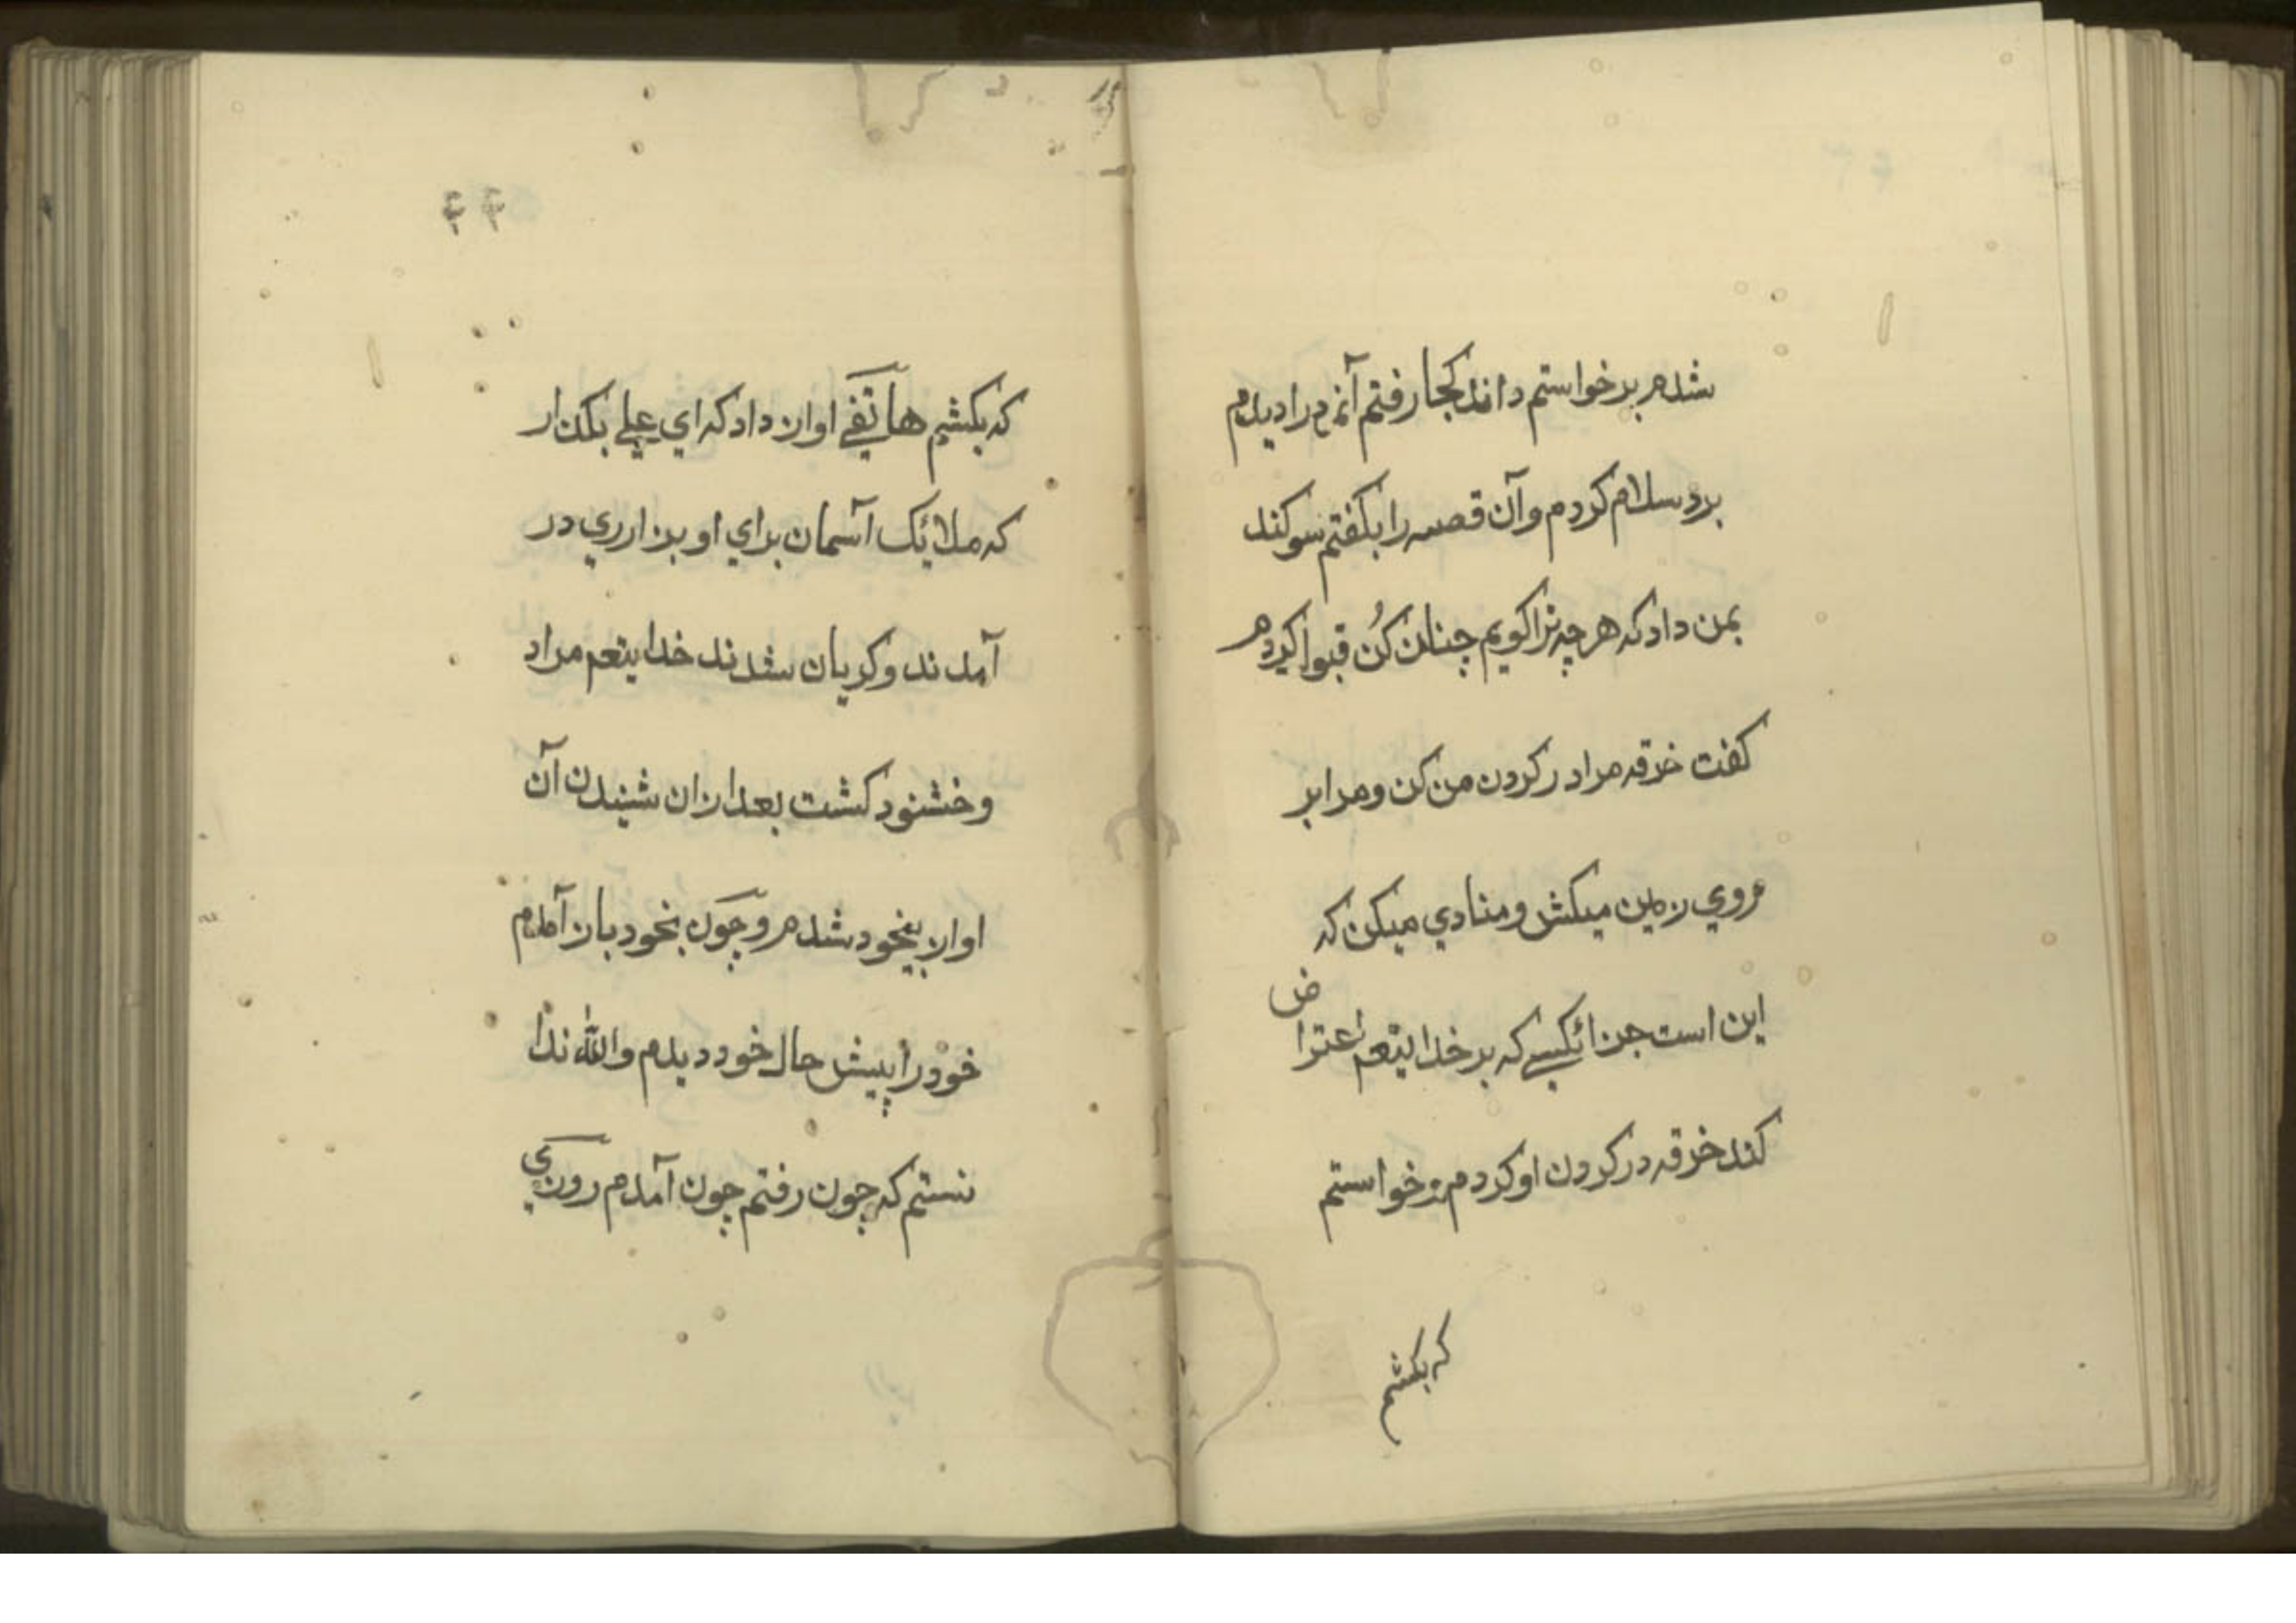 شدم برخواستم داند كجا رفتم آنمردرا ديدم
برد سلام كردم وآن قصه را بكفتم سوكند
بمن داد كه هرچه ترا كويم چنان كُن قبول كردم
كفت خرقه مرا در كردن من كن ومرا بر
روي زمين ميكش ومنادي ميكن كه
اين است جزائكسے كه بر خدايتعم اعتراض
كند خرقه در كردن او كردم خواستم
كه بكشم
۴۴
كه بكشم هاتفے اواز داد كه اي علے بكذار
كه ملائك آسمان براي او بزارري در
آمدند وكريان شدند خدايتعم مراد
وخشنود كشت بعد ازان شنيدن آن
اواز بيخود شدم وچون بخود باز آمدم
خودرا پيش حال خود ديدم والله ندا
نستم كه چون رفتم چون آمدم روزي